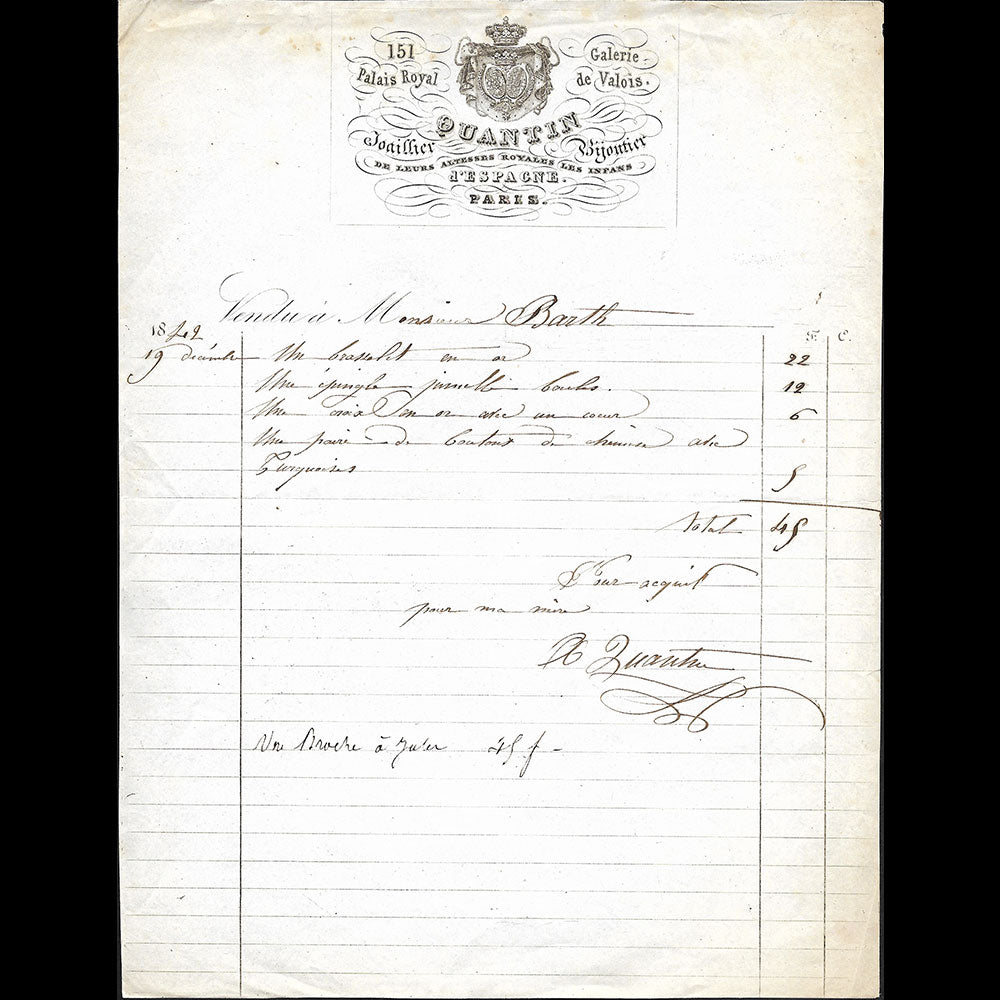 151
Palais Royal
Galerie
de Valois.
QUANTIN
Joaillier Bijoutier
DE LEURS ALTESSES ROYALES LES INFANS
d'ESPAGNE.
PARIS.
Vendu à Monsieur Barth
1842 F. C.
19 décembre Un bracelet en or 22
Une épingle jumelle boules. 12
Une croix en or avec un coeur 6
Une paire de boutons de chemise avec
Turquoises 5
Total 45
Pour acquit
pour ma mère
Quantin
Une Broche à 45 f